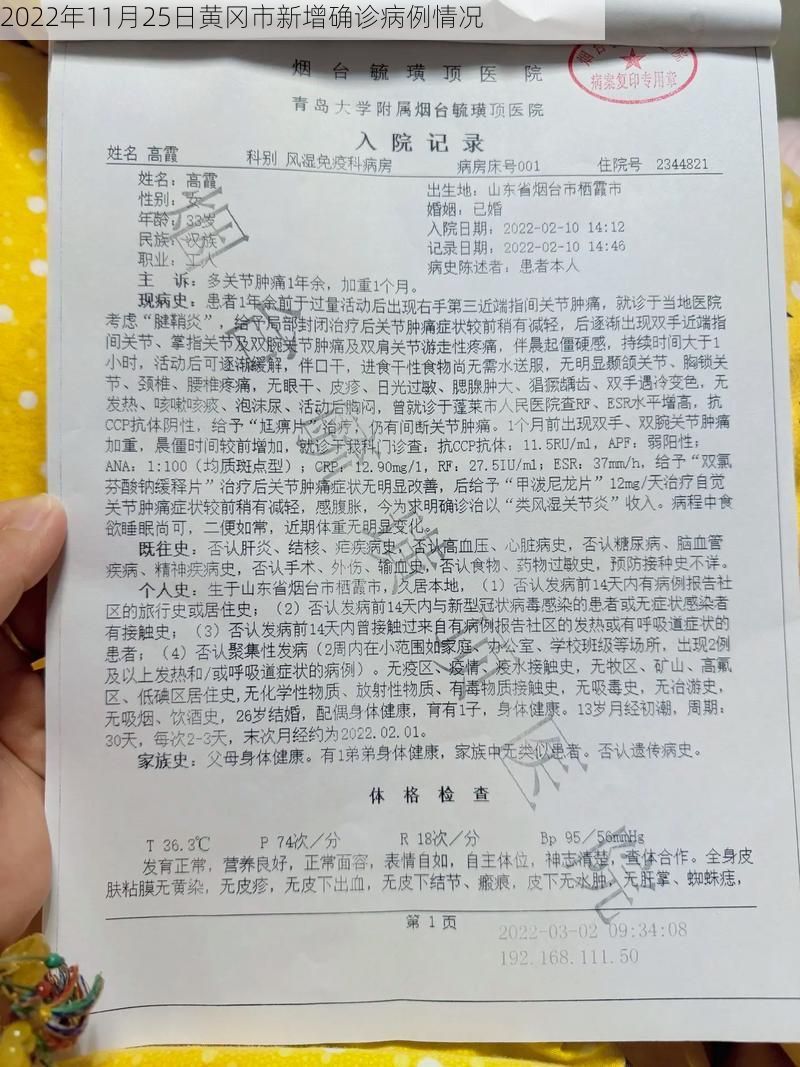 2022年11月25日黄冈市新增确诊病例情况
烟台毓璜顶医院
病案复印专用章
青岛大学附属烟台毓璜顶医院
入院记录
姓名 高霞 科别 风湿免疫科病房 病房床号001 住院号 2344821
姓名：高霞 出生地：山东省烟台市栖霞市
性别：女 婚姻：已婚
年龄：33岁 入院日期：2022-02-10 14:12
民族：汉族 记录日期：2022-02-10 14:46
职业：工人 病史陈述者：患者本人
主 诉：多关节肿痛1年余，加重1个月。
现病史：患者1年余前于过量活动后出现右手第三近端指间关节肿痛，就诊于当地医院
考虑“腱鞘炎”，给予局部封闭治疗后关节肿痛症状较前稍有减轻，后逐渐出现双手近端指
间关节、掌指关节及双腕关节肿痛及双肩关节游走性疼痛，伴晨起僵硬感，持续时间大于1
小时，活动后可逐渐缓解，伴口干，进食干性食物尚无需水送服，无明显颞颌关节、胸锁关
节、颈椎、腰椎疼痛，无眼干、皮疹、日光过敏、腮腺肿大、猖獗龋齿、双手遇冷变色，无
发热、咳嗽咳痰、泡沫尿、活动后胸闷，曾就诊于蓬莱市人民医院查RF、ESR水平增高，抗
CCP抗体阴性，给予“尪痹片”治疗，仍有间断关节肿痛。1个月前出现双手、双腕关节肿痛
加重，晨僵时间较前增加，就诊于我科门诊查：抗CCP抗体：11.5RU/ml，APF：弱阳性；
ANA：1:100（均质斑点型）；CRP：12.90mg/l，RF：27.5IU/ml；ESR：37mm/h，给予“双氯
芬酸钠缓释片”治疗后关节肿痛症状无明显改善，后给予“甲泼尼龙片”12mg/天治疗自觉
关节肿痛症状较前稍有减轻，感腹胀，今为求明确诊治以“类风湿关节炎”收入。病程中食
欲睡眠尚可，二便如常，近期体重无明显变化。
既往史：否认肝炎、结核、疟疾病史，否认高血压、心脏病史，否认糖尿病、脑血管
疾病、精神疾病史，否认手术、外伤、输血史，否认食物、药物过敏史，预防接种史不详。
个人史：生于山东省烟台市栖霞市，久居本地，（1）否认发病前14天内有病例报告社
区的旅行史或居住史；（2）否认发病前14天内与新型冠状病毒感染的患者或无症状感染者
有接触史；（3）否认发病前14天内曾接触过来自有病例报告社区的发热或有呼吸道症状的
患者；（4）否认聚集性发病（2周内在小范围如家庭、办公室、学校班级等场所，出现2例
及以上发热和/或呼吸道症状的病例）。无疫区、疫情、疫水接触史，无牧区、矿山、高氟
区、低碘区居住史,无化学性物质、放射性物质、有毒物质接触史，无吸毒史，无冶游史，
无吸烟、饮酒史，26岁结婚，配偶身体健康，育有1子，身体健康。13岁月经初潮，周期：
30天，每次2-3天，末次月经约为2022.02.01。
家族史：父母身体健康。有1弟弟身体健康，家族中无类似患者。否认遗传病史。
体格检查
T 36.3℃ P 74次／分 R 18次／分 Bp 95／56mmHg
发育正常，营养良好，正常面容，表情自如，自主体位，神志清楚，查体合作。全身皮
肤粘膜无黄染，无皮疹，无皮下出血，无皮下结节、瘢痕，皮下无水肿，无肝掌、蜘蛛痣，
第 1 页
2022-03-02 09:34:08
192.168.111.50